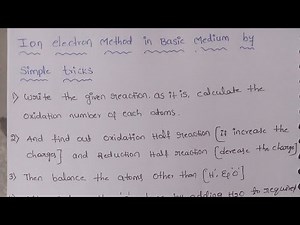 Ion electron Method in Basic Medium by
Simple tricks
1) Write the given reaction as it is, calculate the
oxidation number of each atoms.
2) And find out oxidation Half reaction [if increase the
charge] and Reduction Half reaction [decrease the charge]
3) Then balance the atoms other than [H & O]
adding H2O for required